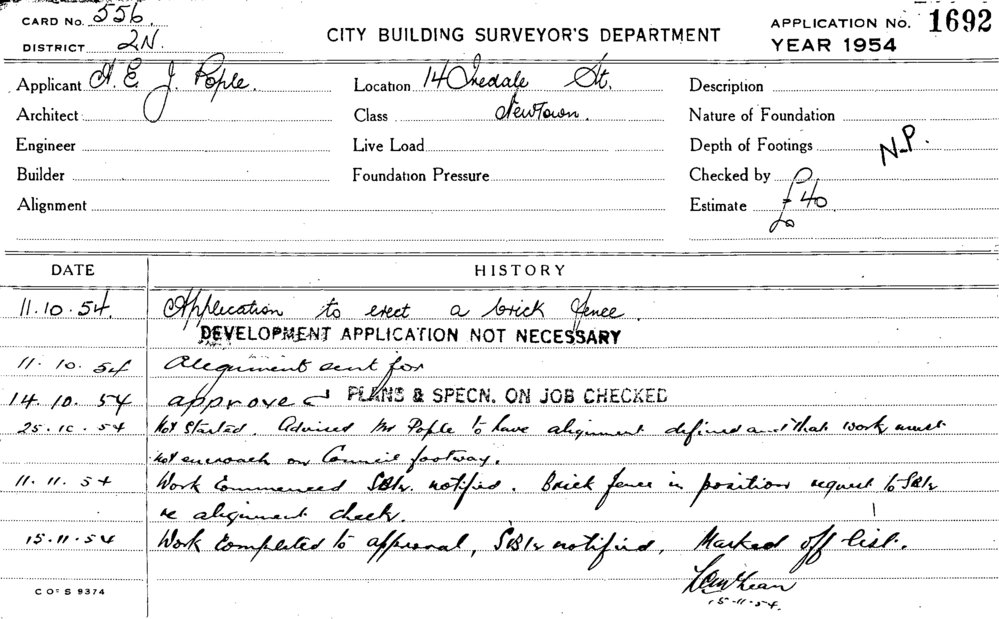 CARD No. 556.
DISTRICT 2N.
CITY BUILDING SURVEYOR'S DEPARTMENT
APPLICATION No. 1692
YEAR 1954
Applicant A. E. J. Pople.
Location 14 Iredale St.
Description
Architect
Class Newtown.
Nature of Foundation
Engineer
Live Load
Depth of Footings N.P.
Builder
Foundation Pressure
Checked by
Alignment
Estimate £40
DATE HISTORY
11.10.54. Application to erect a brick fence.
DEVELOPMENT APPLICATION NOT NECESSARY
11.10.54 Alignment sent for
14.10.54 approved PLANS & SPECN. ON JOB CHECKED
25.10.54 Not Started. Advised Mr Pople to have alignment defined and that work must
not encroach on Council footway.
11.11.54 Work Commenced notified. Brick fence in position request to
re alignment check.
15.11.54 Work Completed to approval, notified. Marked off list.
15-11-54.
C OF S 9374